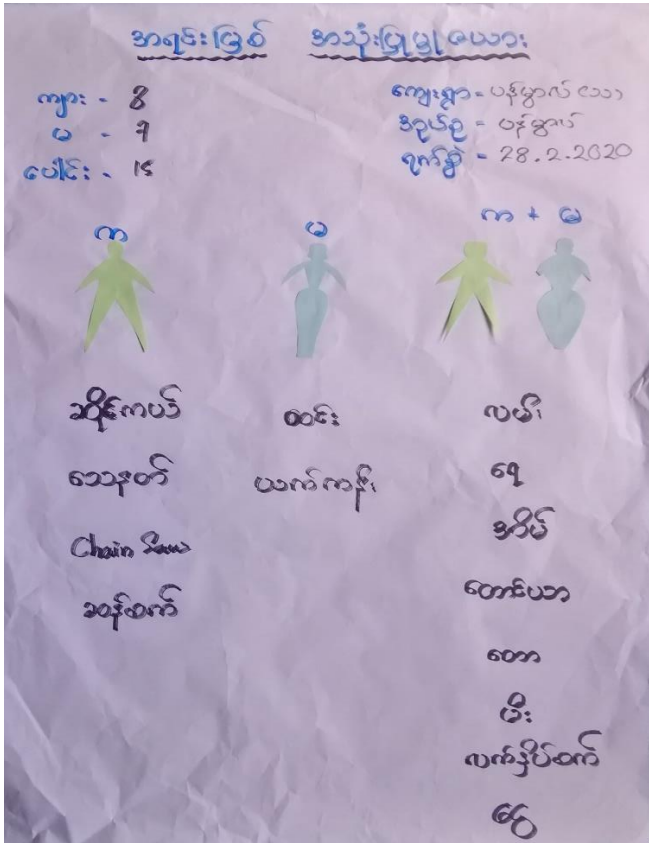 အရင်းမြစ် အသုံးပြုမှု ဇယား
ကျား - 8
မ - 7
ပေါင်း - 15
ကျေးရွာ - ပန်မွာလ်
ဒဥယ်ဥ - ပန်မွာလ်
ရက်စွဲ - 28.2.2020
က
မ
က + မ
ဆိုင်ကယ်
သေနတ်
Chain Saw
ဆန်စက်
ထင်း
ယက်ကန်း
လမ်း
ရေ
အိမ်
တောင်ယာ
တော
မီး
လက်နှိပ်စက်
ငွေ